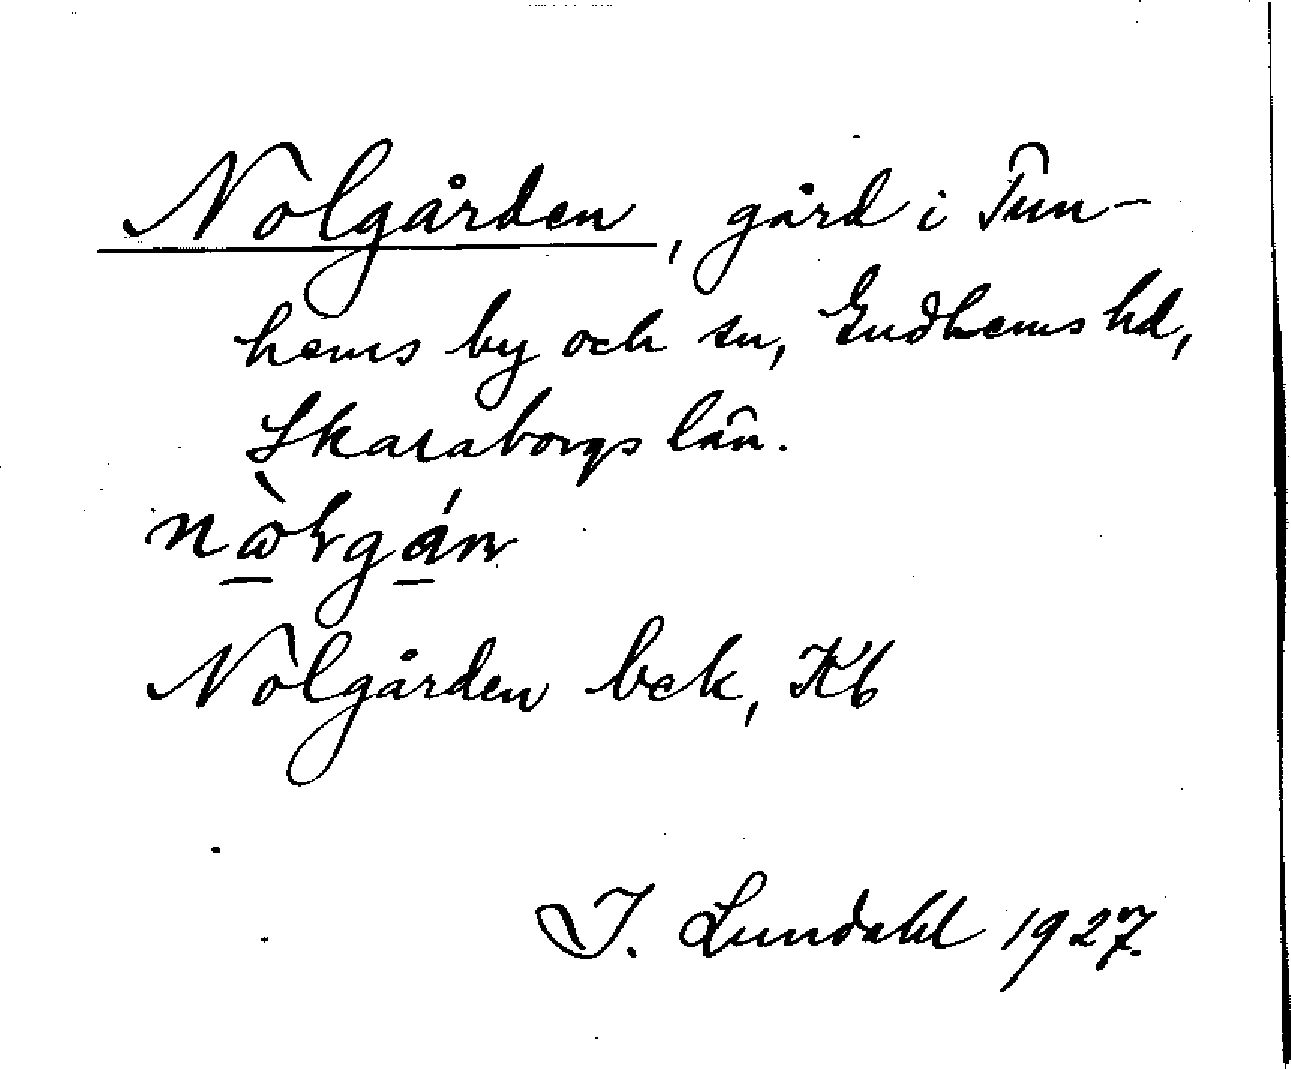 Nolgården, gård i Tun-
hems by och sn, Gudhems hd,
Skaraborgs län.
Nolgården bek, Kb
I. Lundahl 1927.